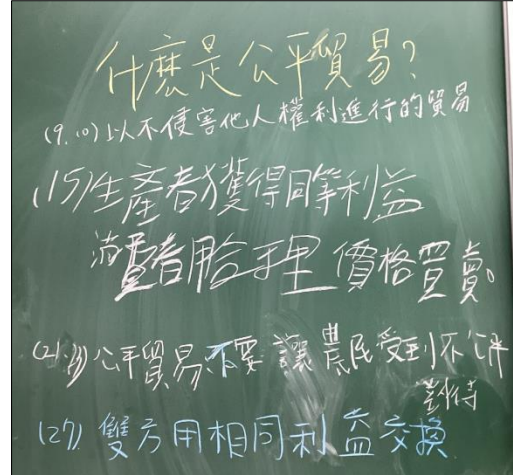 什麼是公平貿易?
(9.10)以不侵害他人權利進行的貿易
(15)生產者獲得同等利益
消費者用合理價格買賣。
(21.3)公平貿易不要讓農民受到不公平
對待
(27)雙方用相同利益交換